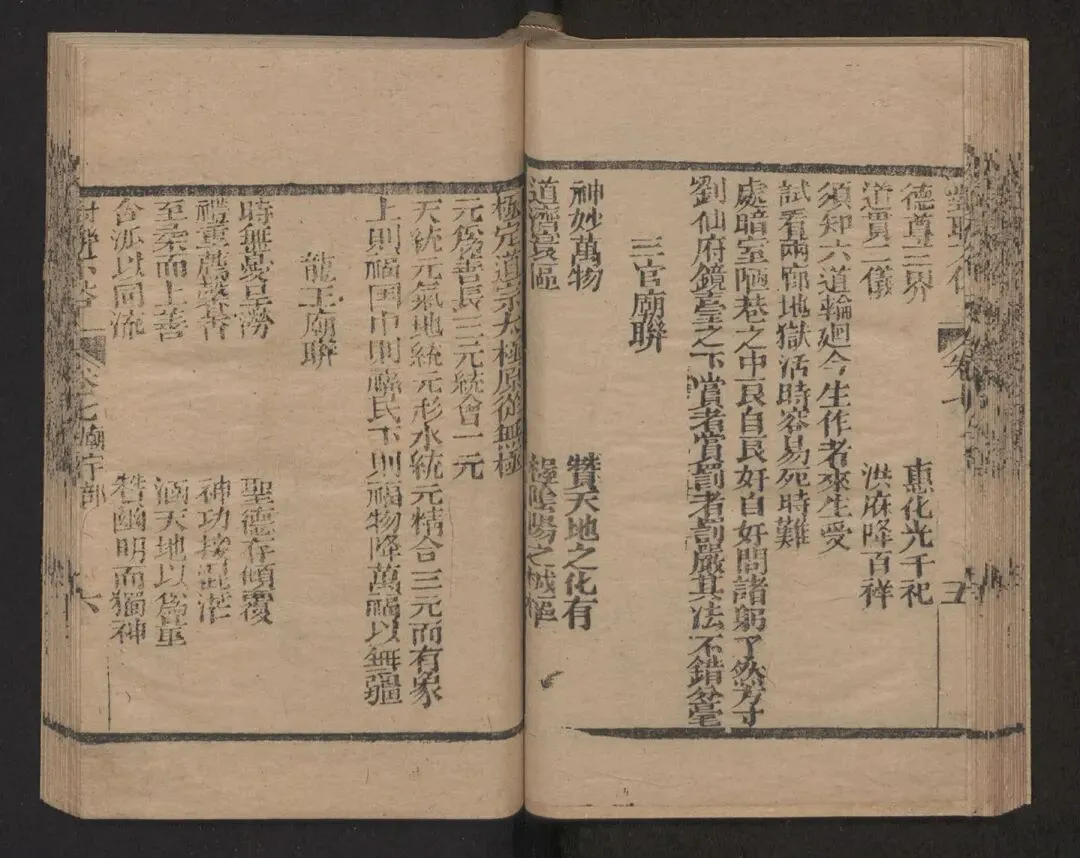 德尊三界 惠化光千祀
道貫二儀 洪庥降百祥
須知六道輪廻今生作者來生受
試看兩廊地獄活時容易死時難
處暗室陋巷之中良自良奸自奸問諸躬了然方寸
劉仙府鏡臺之下賞者賞罰者罰嚴其法不錯分毫
三官廟聯
神妙萬物 贊天地之化有
道濟寰區 陰陽之
極定道宗太極原從無極
元為善長三元統會一元
天統元氣地統元形水統元精合三元而有象
上則福國中則福民下則福物降萬福以無疆
龍王廟聯
時無旱澇 聖德存傾覆
禮重薦馨香 神功接混茫
至柔而上善 涵天地以為量
含派以同流 贊幽明而獨神
卷七 廟行部 六